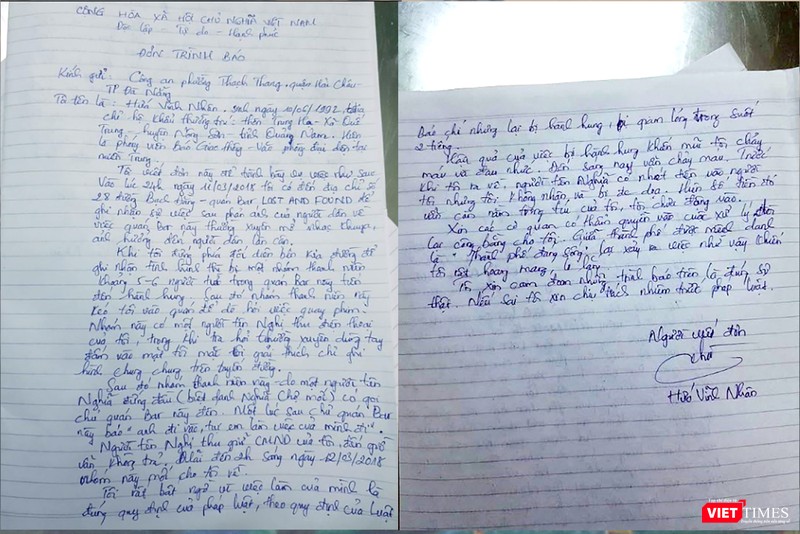 CỘNG HÒA XÃ HỘI CHỦ NGHĨA VIỆT NAM
Độc lập - Tự do - Hạnh phúc
ĐƠN TRÌNH BÁO
Kính gửi: Công an phường Thạch Thang, quận Hải Châu
TP Đà Nẵng
Tôi tên là: Hứa Vĩnh Nhân. sinh ngày 10/06/1992.
chỉ hộ khẩu thường trú: thôn Trung Hạ - Xã Quế
Trung, huyện Nông Sơn - tỉnh Quảng Nam. Hiện
là phóng viên Báo Giao thông - Văn phòng đại diện tại
miền Trung.
Tôi viết đơn này để trình bày sự việc như sau:
Vào lúc 24h ngày 11/03/2018 tôi có đến địa chỉ số
28 đường Bạch Đằng - quán Bar LOST AND FOUND để
ghi nhận sự việc sau phản ánh của người dân về
việc quán Bar này thường xuyên mở nhạc khuya,
ảnh hưởng đến người dân lân cận.
Khi tôi đứng phía đối diện bên kia đường để
ghi nhận tình hình thì bị một nhóm thanh niên
khoảng 5-6 người từ trong quán bar này tiến
đến hành hung. Sau đó nhóm thanh niên này
kéo tôi vào quán để hỏi việc quay phim.
Nhóm này có một người tên Nghị thu điện thoại
của tôi, trong khi tra hỏi thường xuyên dùng tay
đấm vào mặt tôi mặc tôi giải thích chỉ ghi
hình chung chung trên tuyến đường.
Sau đó nhóm thanh niên này do một người tên
Nghĩa đứng đầu (biệt danh Nghĩa Chợ mới) có gọi
chủ quán Bar này đến. Một lúc sau chủ quán Bar
này bảo "anh đi về, tụi em làm việc của mình đi".
Người tên Nghị thu giữ CMND của tôi đến giờ
vẫn không trả. Mãi đến 2h sáng ngày 12/03/2018
nhóm này mới cho tôi về.
Tôi rất bất ngờ vì việc làm của mình là
đúng quy định của pháp luật, theo quy định của Luật
Báo chí nhưng lại bị hành hung, bị giam lỏng trong suốt
2 tiếng.
Hậu quả của việc bị hành hung khiến mũi tôi chảy
máu và đau nhức. Đến sáng nay vẫn chảy máu. Trước
khi tôi ra về, người tên Nghĩa có nhét tiền vào người
tôi nhưng tôi không nhận, và bị đe dọa. Hiện số tiền đó
vẫn còn nằm trong túi của tôi, tôi chưa động vào.
Xin các cơ quan có thẩm quyền vào cuộc xử lý, đòi
lại công bằng cho tôi. Giữa thành phố được mệnh danh
là "Thành phố đáng sống" lại xảy ra việc như vậy khiến
tôi rất hoang mang, lo lắng.
Tôi xin cam đoan những trình báo trên là đúng sự
thật. Nếu sai tôi xin chịu trách nhiệm trước pháp luật.
Người viết đơn
Hứa Vĩnh Nhân
VIETTIMES